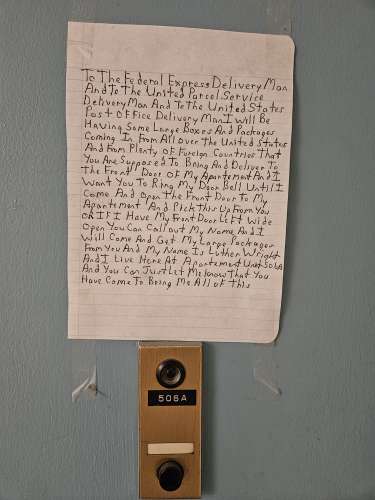 To The Federal Express Delivery Man
And To The United Parcel Service
Delivery Man And To The United States
Post Office Delivery Man I Will Be
Having Some Large Boxes And Packages
Coming In From All Over The United States
And From Plenty Of Foreign Countries That
You Are Supposed To Bring And Deliver To
The Front Door Of My Apartement And I
Want You To Ring My Door Bell Until I
Come And Open The Front Door To My
Apartement And Pick This Up From You
OR IF I Have My Front Door Left Wide
Open You Can Call out My Name And I
Will Come And Get My Large Packages
From You And My Name Is Luther Wright
And I Live Here At Apartement Unit 506A
And You Can Just Let Me Know That You
Have Come To Bring Me All of This
506A